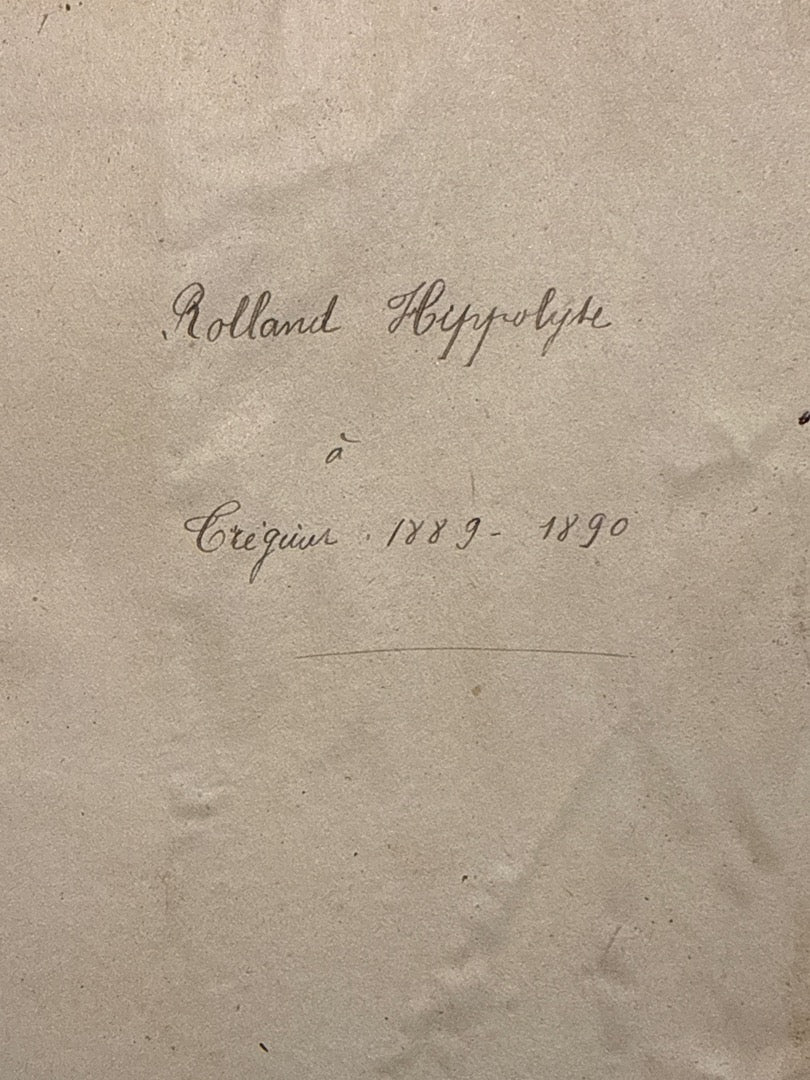 Rolland Hippolyte
à
Tréguier. 1889- 1890